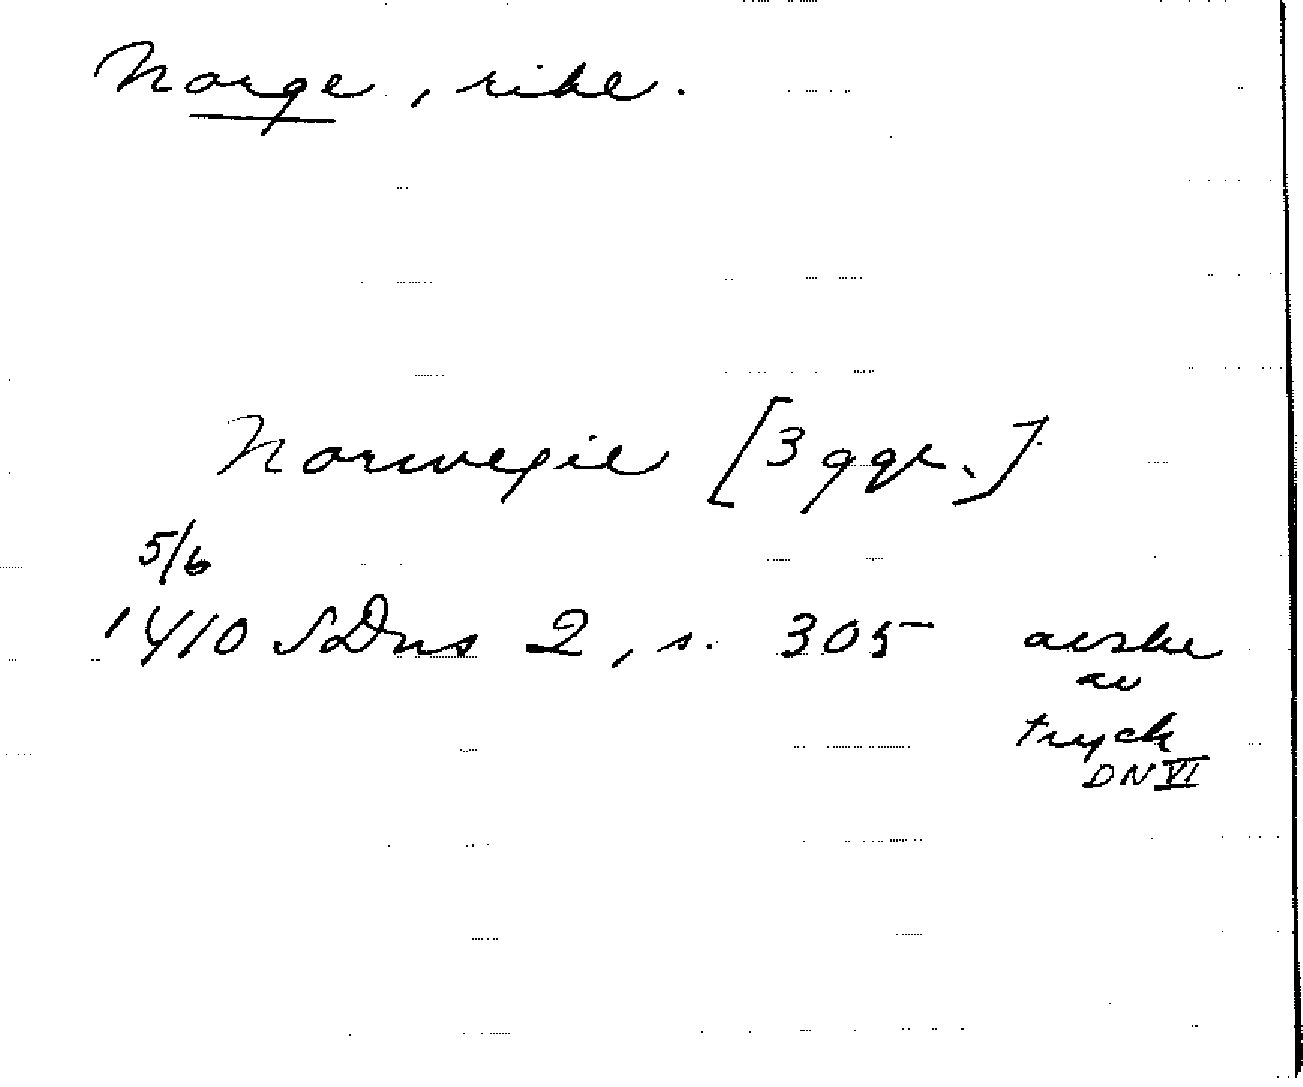 Norge, rike.
Norwegie [3 ggr.]
5/6
1410 SDns 2, s. 305 avskr
av
tryck
DN VI